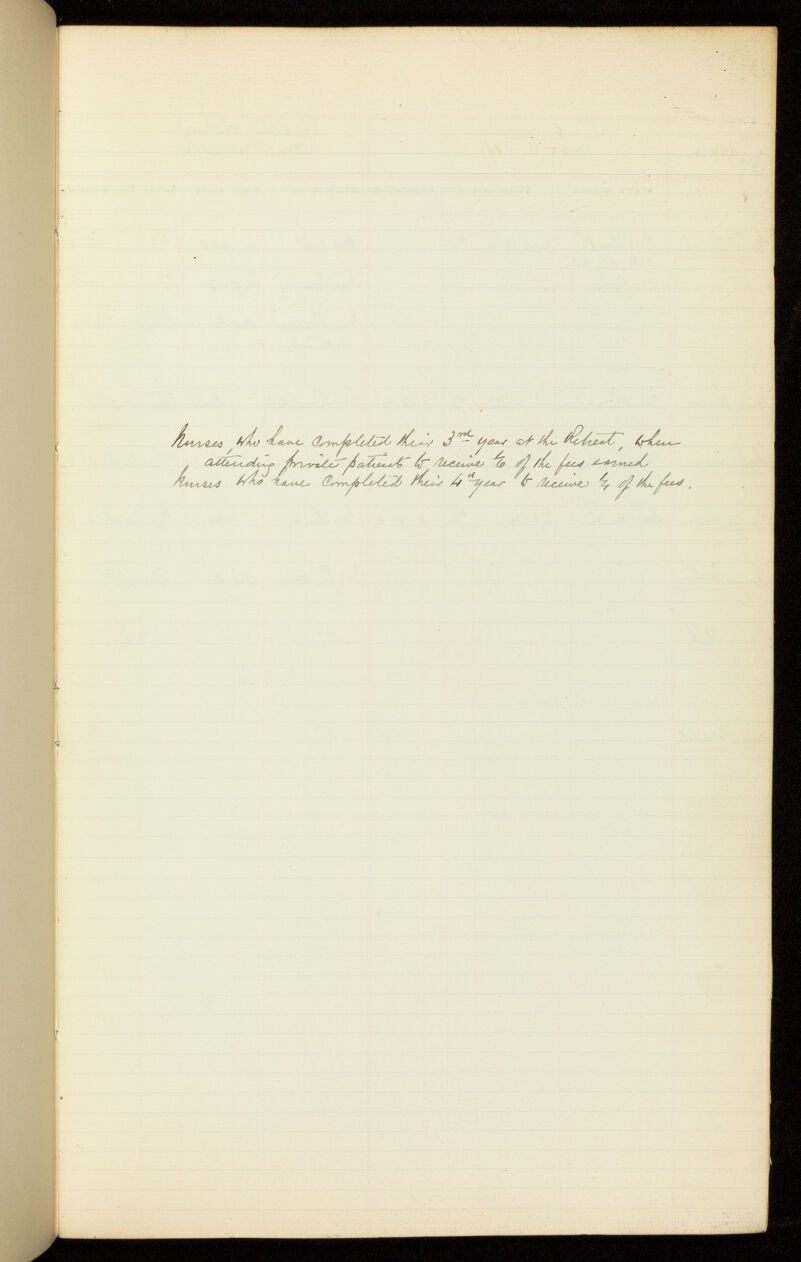 Nurses, who have completed their 3rd year at the Retreat, when
attending private patients to receive 1/6 of the fees earned
Nurses who have completed their 4th year to receive 1/4 of the fees.